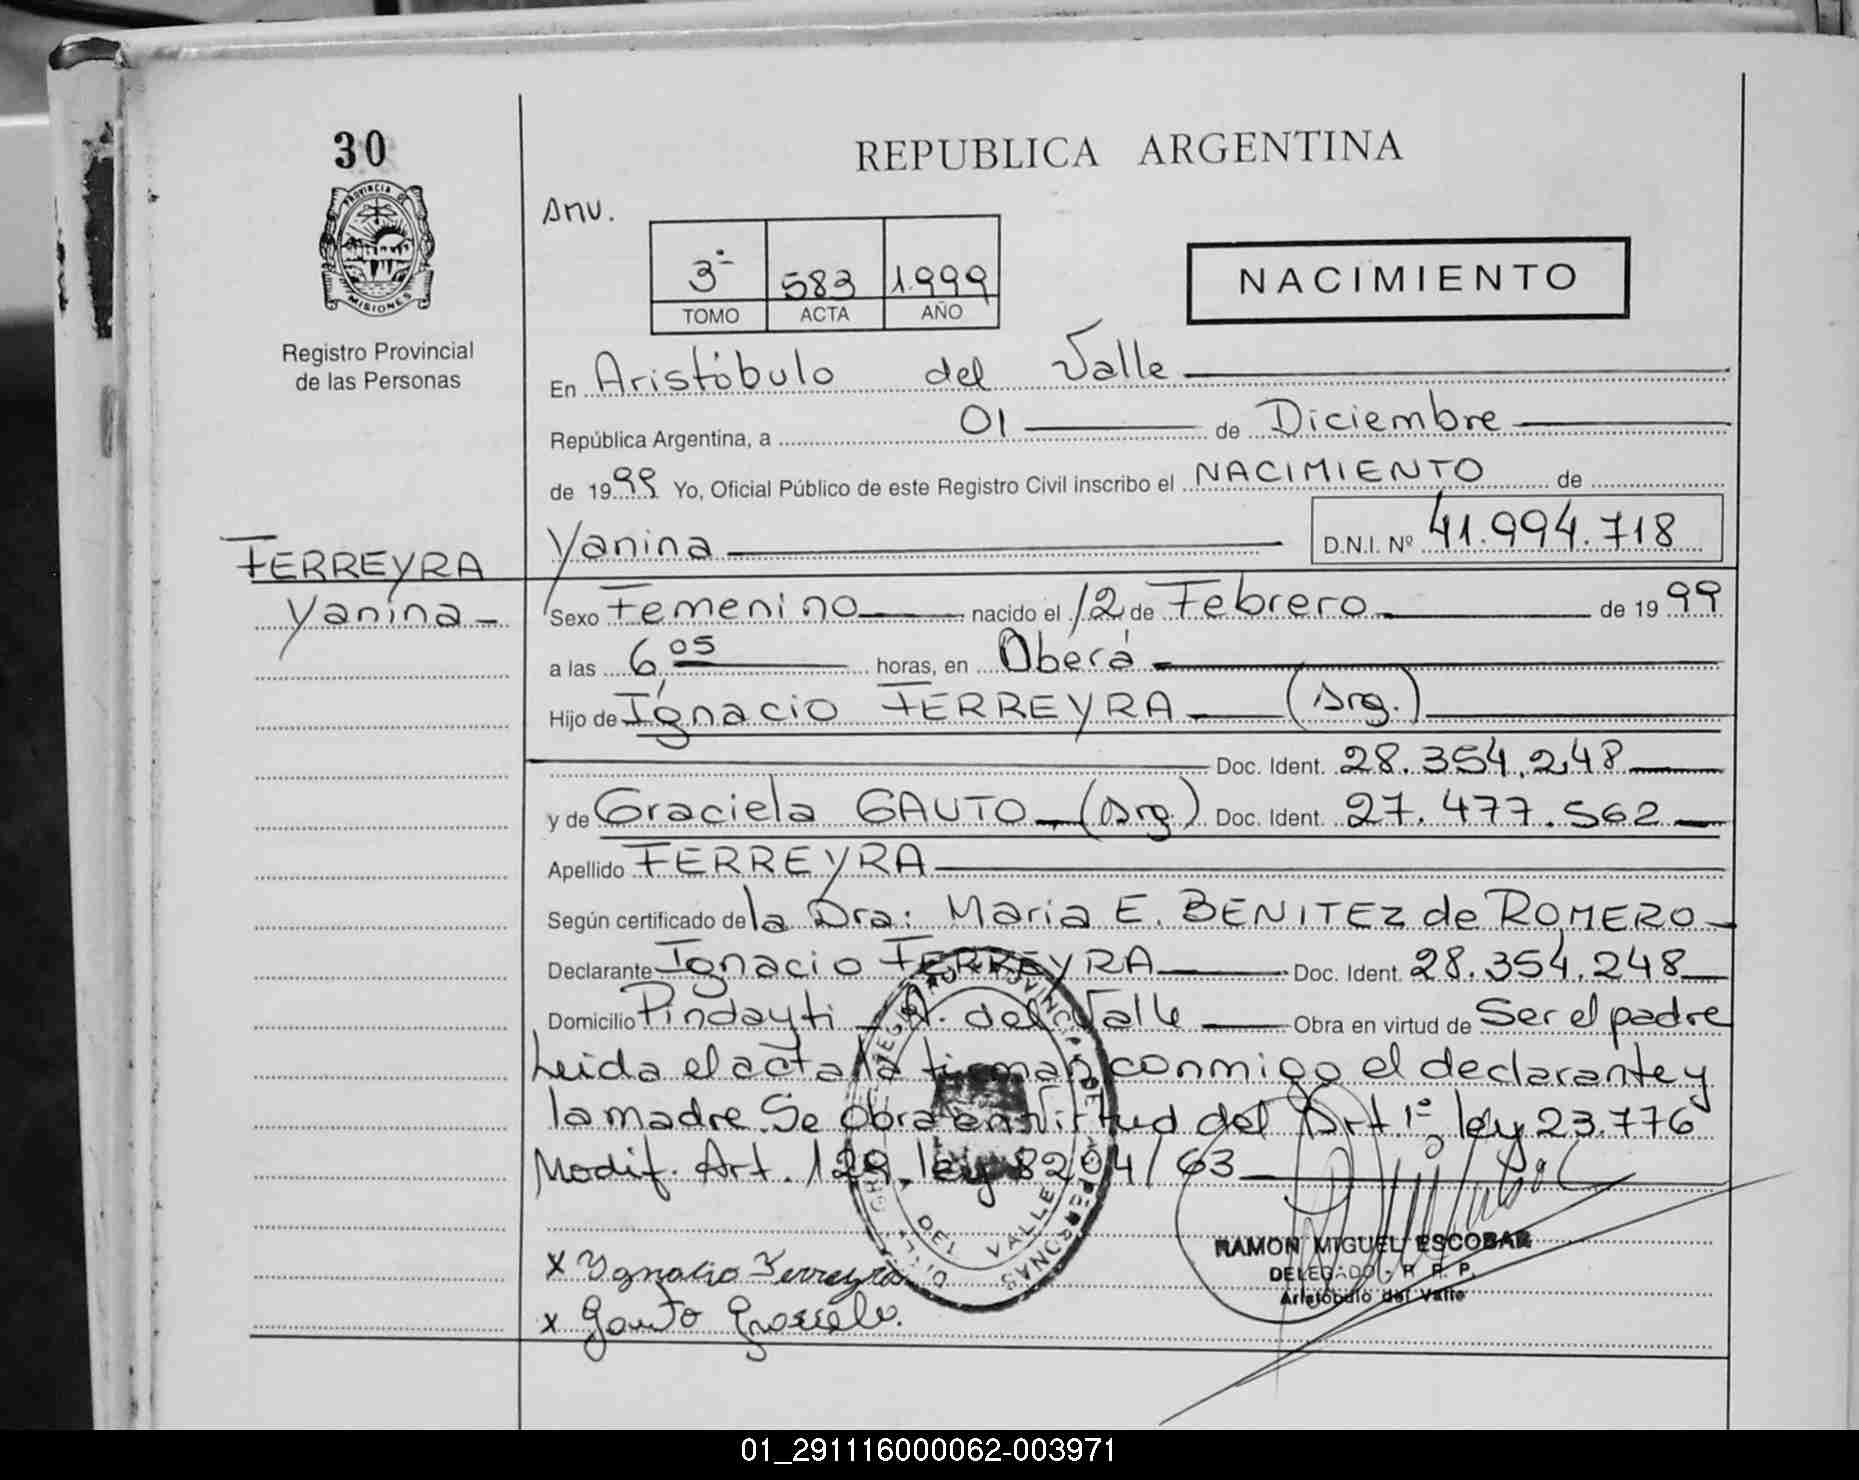 30
REPUBLICA ARGENTINA
PROVINCIA DE
MISIONES
Registro Provincial
de las Personas
Anv.
3º 583 1.999
TOMO ACTA AÑO
NACIMIENTO
En Aristóbulo del Valle
República Argentina, a 01 de Diciembre
de 1999 Yo, Oficial Público de este Registro Civil inscribo el NACIMIENTO de
Yanina D.N.I. Nº 41.994.718
FERREYRA
Yanina
Sexo Femenino nacido el 12 de Febrero de 1999
a las 6 05 horas, en Oberá
Hijo de Ignacio FERREYRA (Arg.)
Doc. Ident. 28.354.248
y de Graciela GAUTO (Arg) Doc. Ident. 27.477.562
Apellido FERREYRA
Según certificado de la Dra: Maria E. BENITEZ de ROMERO
Declarante Ignacio FERREYRA Doc. Ident. 28.354.248
Domicilio Pindayti - A. del Valle Obra en virtud de Ser el padre
Leida el acta la firman conmigo el declarante y
la madre. Se obra en virtud del Art. 1º, ley 23.776
Modif. Art. 129, ley 8204/63
DEL VALLE
x Ygnacio Ferreyra
x Gauto Graciela.
RAMON MIGUEL ESCOBAR
DELEGADO - R. R. P.
Aristóbulo del Valle
01_291116000062-003971